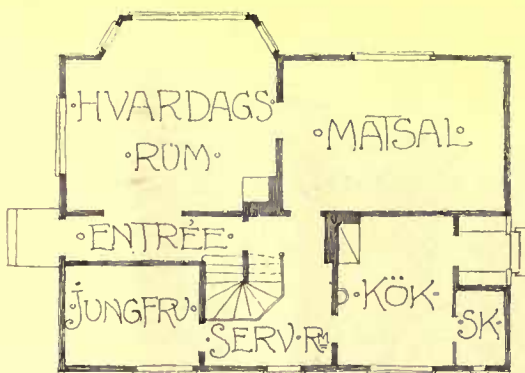 ·HVARDAGS
·RUM·
·MATSAL·
·ENTRÉE·
JUNGFRU·
·SERV·R·
·KÖK·
SK·